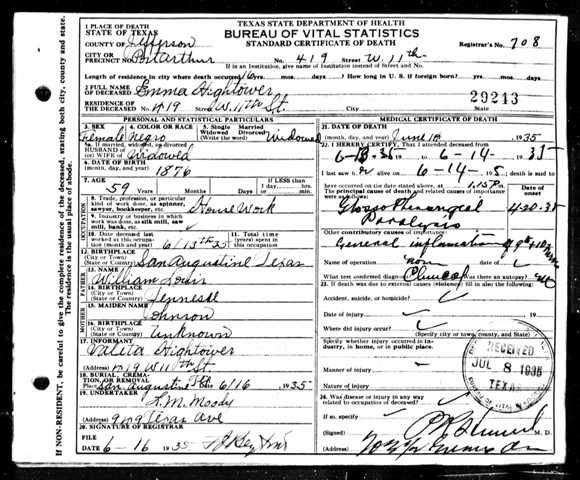 TEXAS STATE DEPARTMENT OF HEALTH
BUREAU OF VITAL STATISTICS
STANDARD CERTIFICATE OF DEATH
1 PLACE OF DEATH
STATE OF TEXAS
COUNTY OF Jefferson
CITY OR PRECINCT NO. Port Arthur
Registrar's No. 708
No. 419 Street W. 11th
If in an Institution, give name of Institution instead of Street and No.
Length of residence in city where death occurred
How long in U. S. if foreign born?
2 FULL NAME OF DECEASED Emma Hightower
RESIDENCE OF DECEASED No. 419 W. 11th St. City State
29213
PERSONAL AND STATISTICAL PARTICULARS
3. SEX Female
4. COLOR OR RACE Negro
5. Single Married Widowed Divorced (Write the word) Widowed
5a. If married, widowed, or divorced
HUSBAND OF
(or) WIFE OF Widowed
6. DATE OF BIRTH 1876
7. AGE 59 Years Months Days If LESS than 1 day
8. Trade, profession, or particular kind of work done, as spinner, sawyer, bookkeeper, etc. House Work
9. Industry or business in which work was done, as silk mill, saw mill, bank, etc.
10. Date deceased last worked at this occupation (month and year) 6/13th 35
11. Total time (years) spent in this occupation
12. BIRTHPLACE (City or Town) (State or County) San Augustine Texas
13. NAME William Louis
14. BIRTHPLACE (City or Town) (State or County) Tennesse
15. MAIDEN NAME Johnson
16. BIRTHPLACE (City or Town) (State or County) Unknown
17. INFORMANT Valeta Hightower
(Address) 419 W 11th St.
18. BURIAL, CREMATION, OR REMOVAL
Place San Augustine 6/16 1935
19. UNDERTAKER L. M. Moody
(Address) 909 Texas Ave
20. SIGNATURE OF REGISTRAR
FILE DATE 6-16 1935
MEDICAL CERTIFICATE OF DEATH
21. DATE OF DEATH June 14 1935
22. I HEREBY CERTIFY, That I attended deceased from
6-13-35 to 6-14- 35
I last saw alive on 6-14- 1935 death is said to have occurred on the date stated above, at 1:15 P.m.
The principal cause of death and related causes of importance were as follows:
Date of onset
Glosso Pharangeal Paralysis 4-20-35
Other contributory causes of importance:
General inflamation
Name of operation non date of
What test confirmed diagnosis? Clinical Was there an autopsy?
23. If death was due to external causes (violence) fill in also the following:
Accident, suicide, or homicide?
Date of injury 19
Where did injury occur? (Specify city or town, county, and State)
Specify whether injury occurred in industry, in home, or in public place.
Manner of injury
Nature of injury
24. Was disease or injury in any way related to occupation of deceased?
If so, specify
(Signed) M. D.
(Address)
RECEIVED
JUL 8 1935
TEXAS
BUREAU OF VITAL STATISTICS
OCCUPATION
FATHER
MOTHER
If NON-RESIDENT, be careful to give the complete residence of the deceased, stating both city, county and state.
The residence is the usual place of abode.